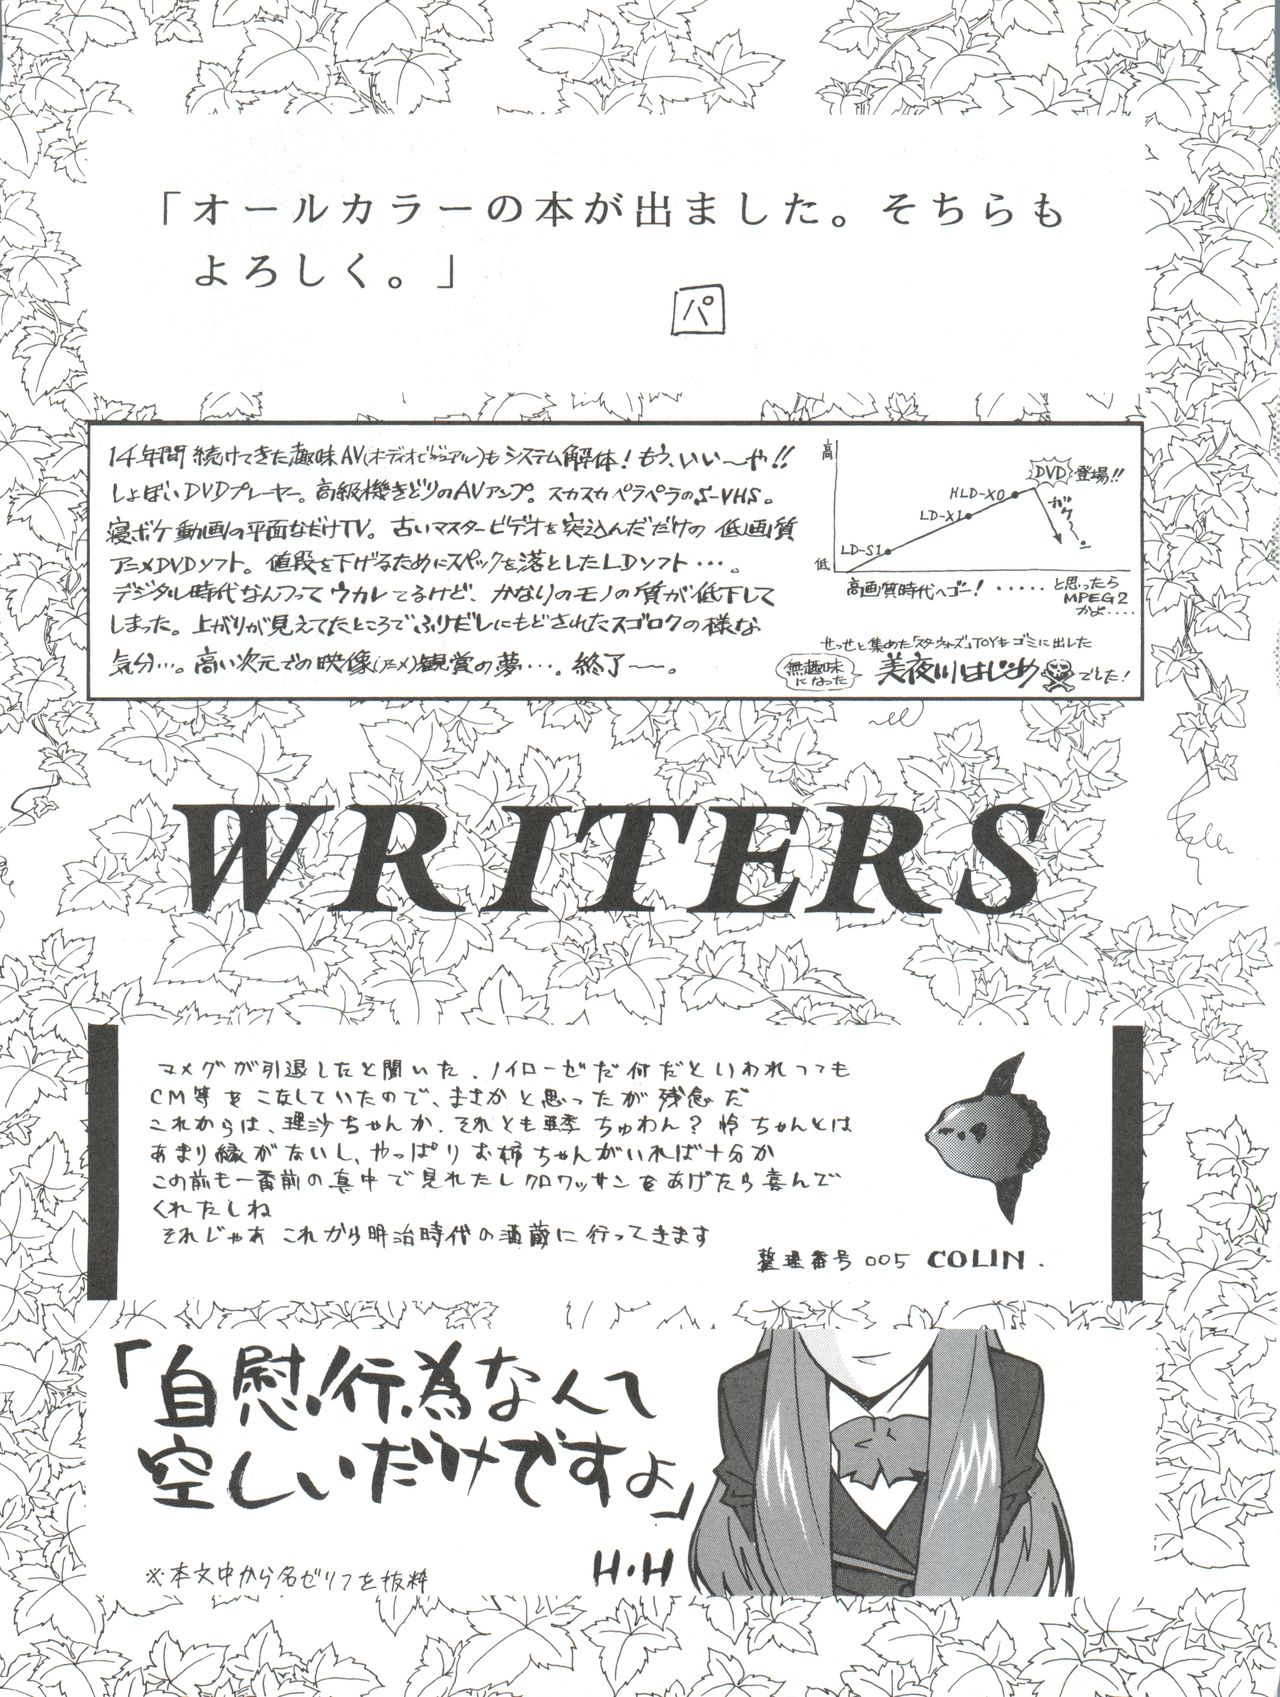 「オールカラーの本が出ました。そちらも
よろしく。」
パ
14年間続けてきた趣味AV(オーディオビジュアル)もシステム解体!もう、いい〜や!!
しょぼいDVDプレーヤー。高級機きどりのAVアンプ。スカスカペラペラのS-VHS。
寝ボケ動画の平面なだけTV。古いマスタービデオを突込んだだけの低画質
アニメDVDソフト。値段を下げるためにスペックを落としたLDソフト・・・。
デジタル時代なんつってウカレてるけど、かなりのモノの質が低下して
しまった。上がりが見えてたところでふりだしにもどされたスゴロクの様な
気分…。高い次元での映像(アニメ)観賞の夢…。終了〜。
高
低
LD-S1
LD-X1
HLD-X0
DVD登場!!
ガク〜ン
高画質時代へゴー!・・・・・と思ったら
MPEG2
かよ・・・・
せっせと集めた「スターウォーズ」TOYもゴミに出した
無趣味
になった
美夜川はじめ
でした!
WRITERS
マメグが引退したと聞いた。ノイローゼだ何だといわれつつも
CM等をこなしていたので、まさかと思ったが残念だ
これからは、理沙ちゃんか、それとも亜季ちゅわん?怜ちゃんとは
あまり縁がないし、やっぱりお姉ちゃんがいれば十分か
この前も一番前の真中で見れたしクロワッサンをあげたら喜んで
くれたしね
それじゃあ これから明治時代の酒蔵に行ってきます
整理番号 005 COLIN.
「自慰行為なんて
空しいだけですよ」
H・H
※本文中から名ゼリフを抜粋